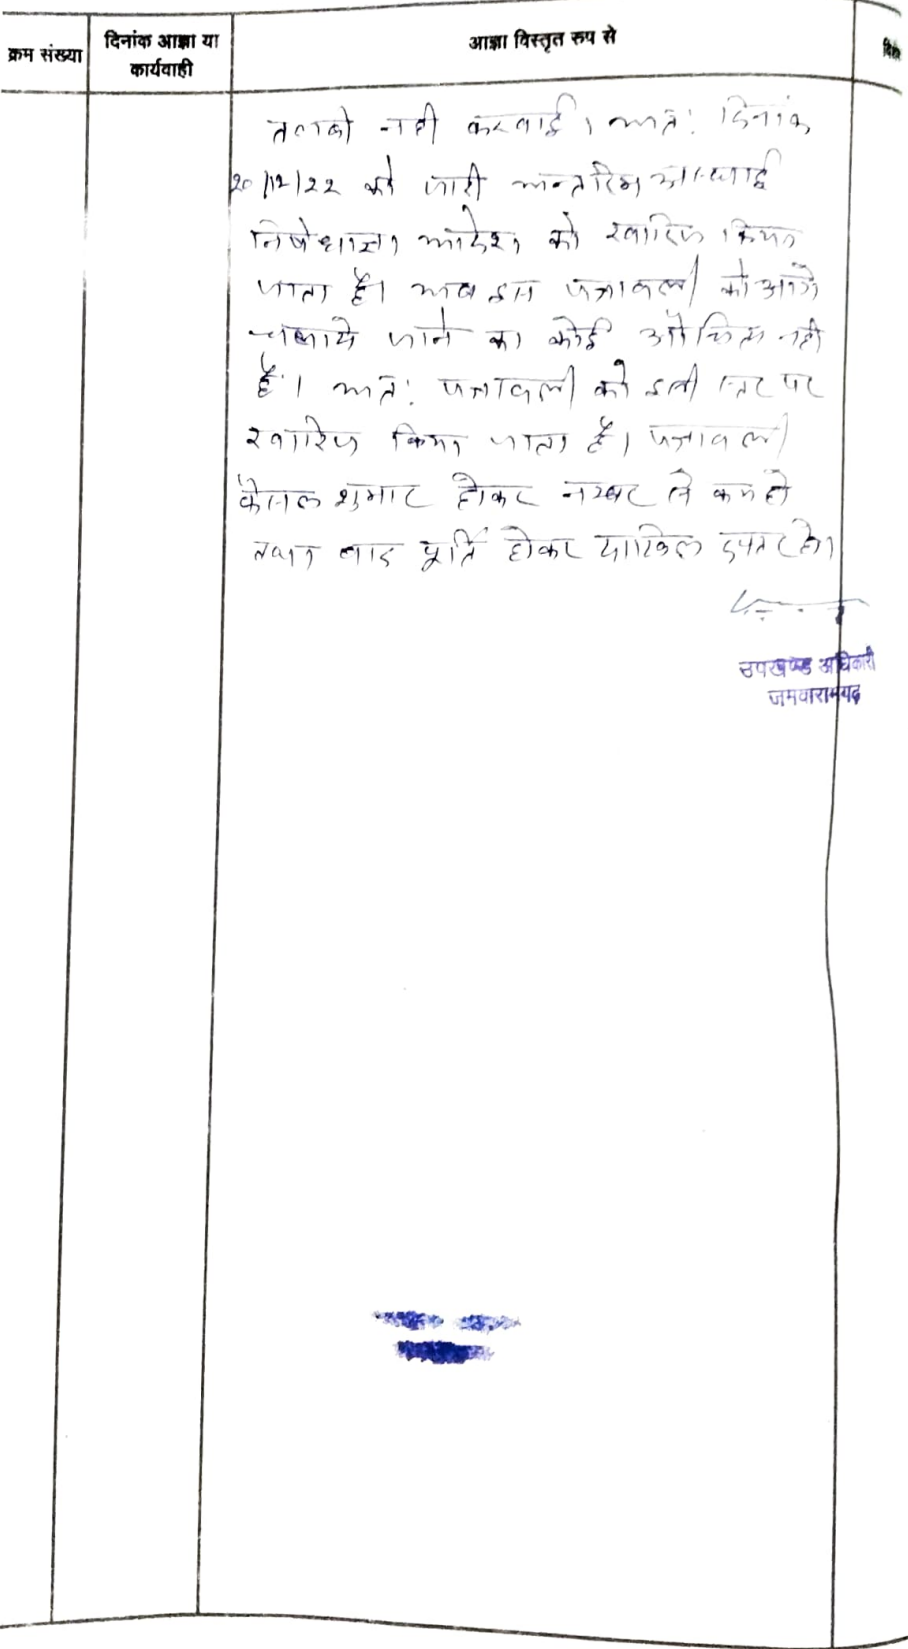 क्रम संख्या
दिनांक आज्ञा या
कार्यवाही
आज्ञा विस्तृत रुप से
तलबी नही करवाई। अतः दिनांक
20/12/22 को जारी अन्तरिम अस्थाई
निषेधाज्ञा आदेश को खारिज किया
जाता है। अब इस पत्रावली को आगे
चलाये जाने का कोई औचित्य नही
है। अतः पत्रावली को इसी स्तर पर
खारिज किया जाता है। पत्रावली
फैसल शुमार होकर नम्बर से कम हो
तथा बाद पूर्ति होकर दाखिल दफ्तर हो।
उपखण्ड अधिकारी
जमवारामगढ़